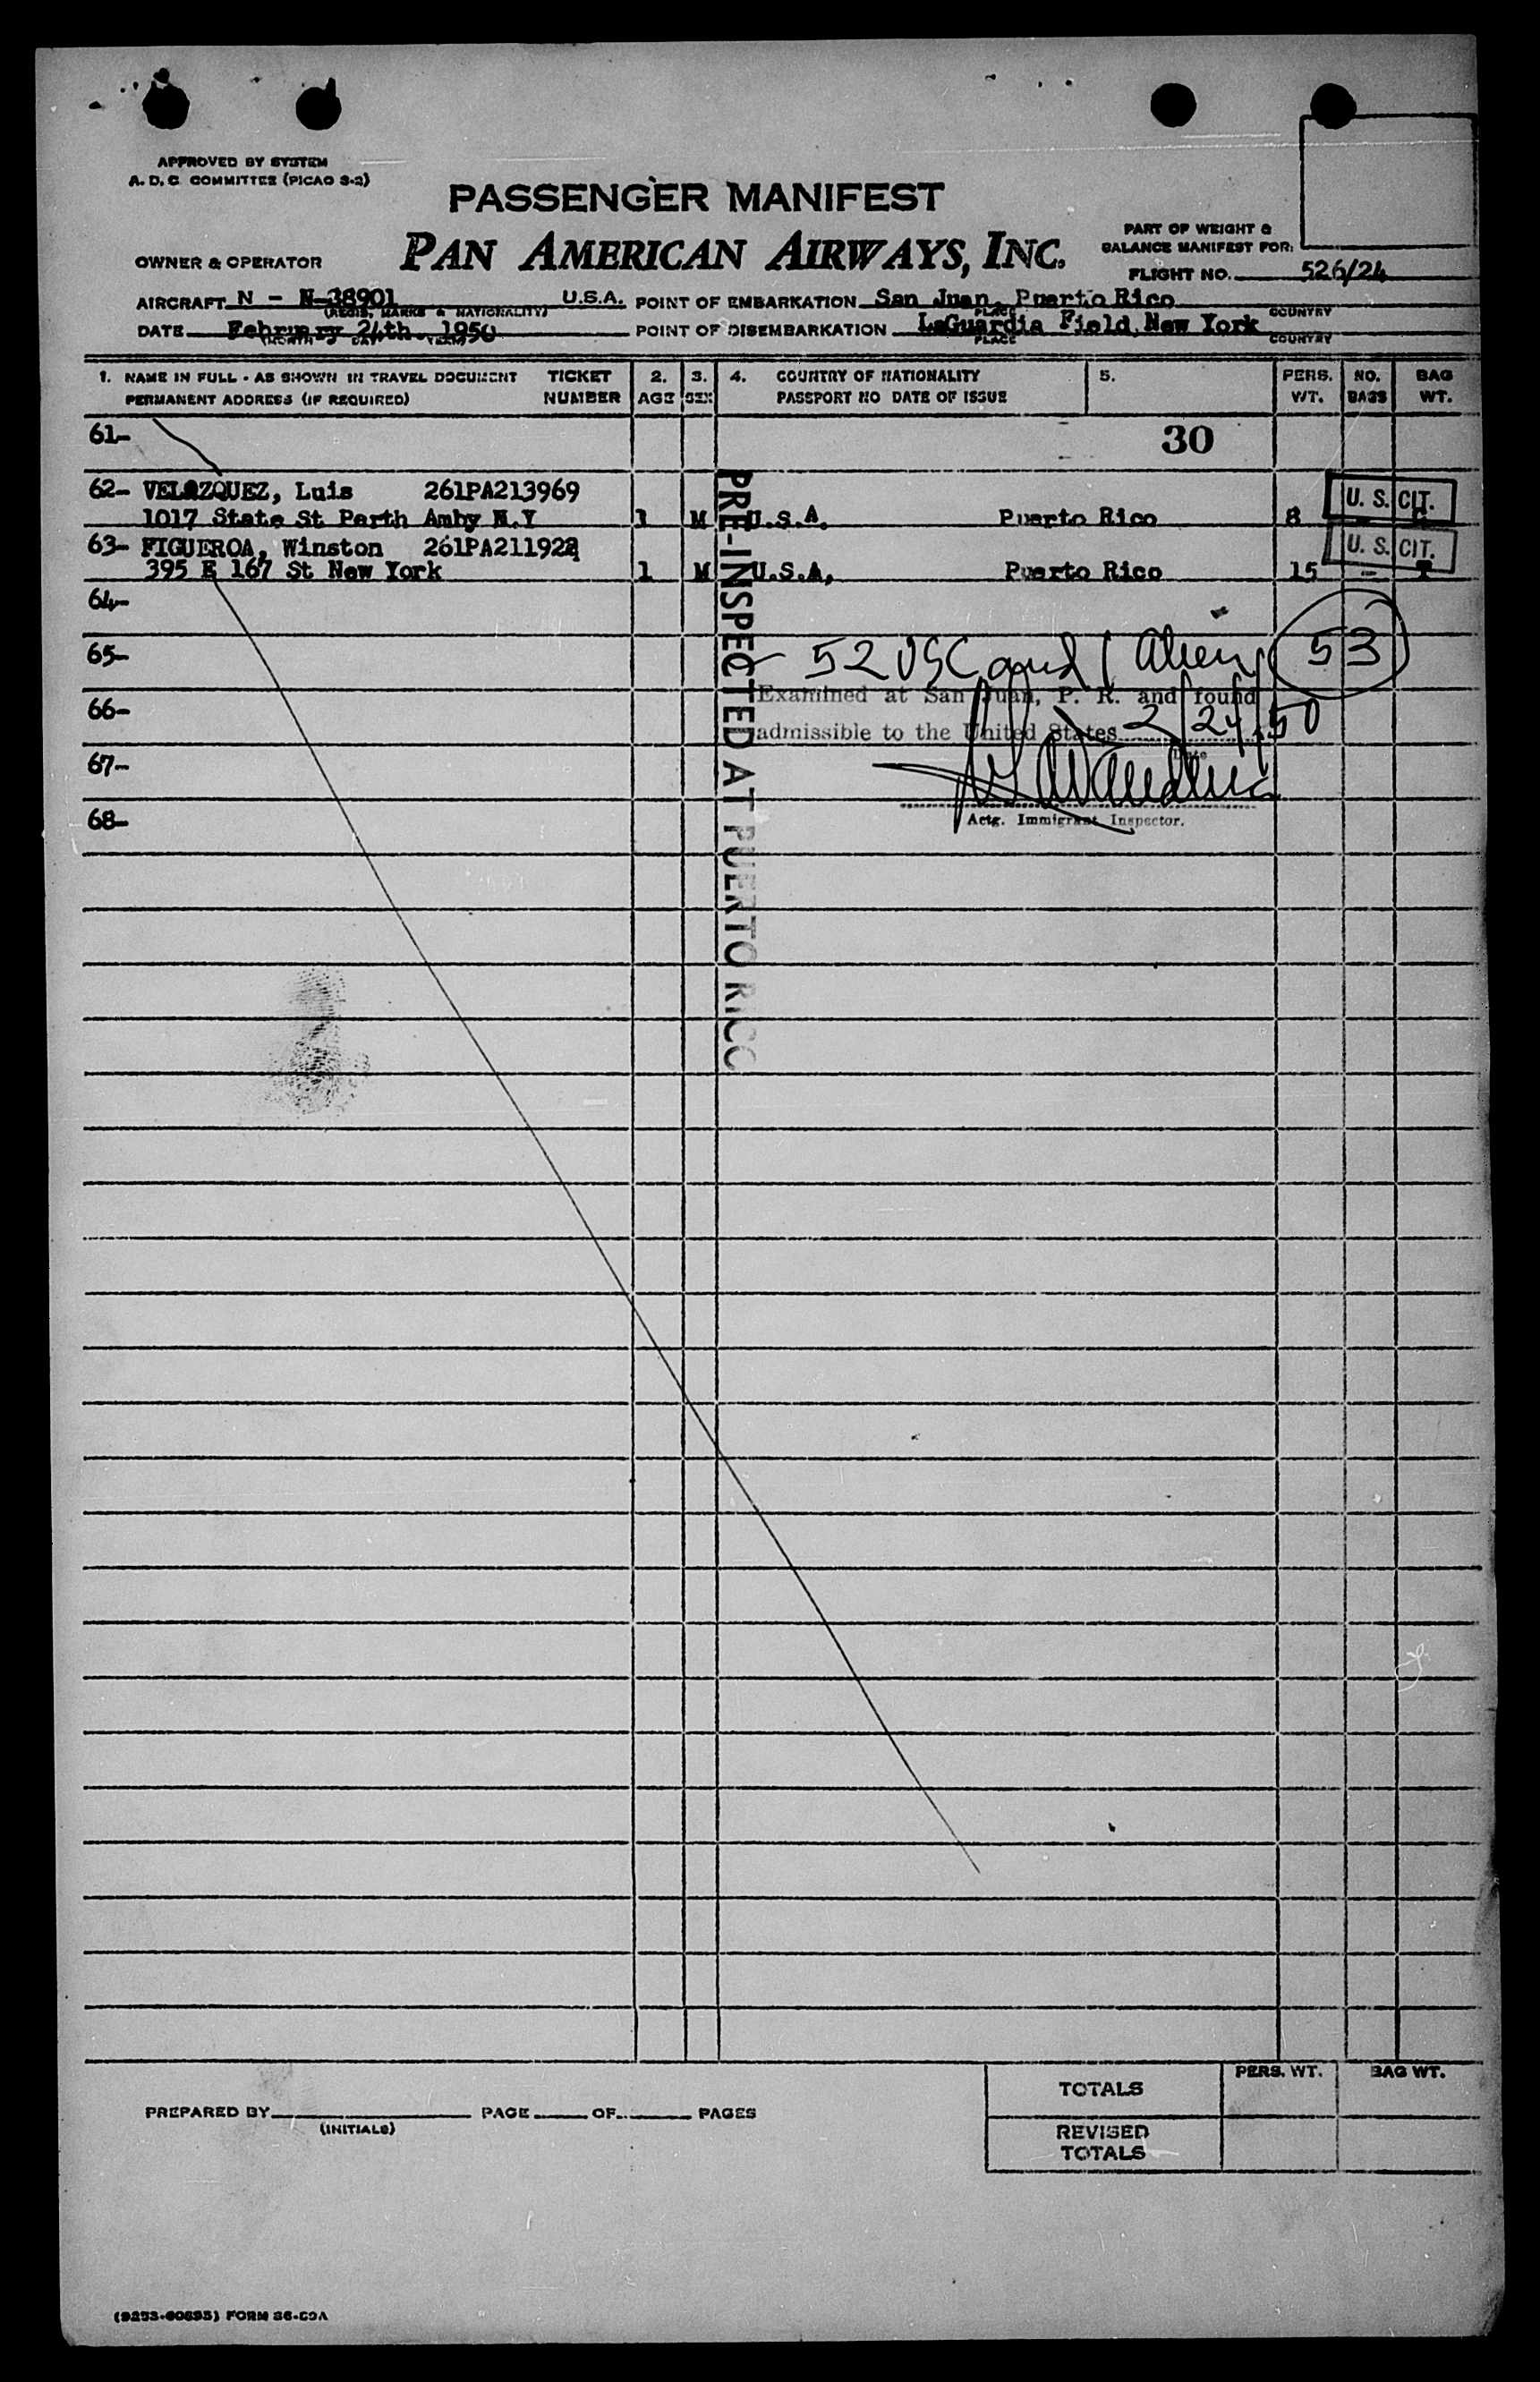 APPROVED BY SYSTEM
A. D. C. COMMITTEE (PICAO S-2)
PASSENGER MANIFEST
PAN AMERICAN AIRWAYS, INC.
PART OF WEIGHT &
BALANCE MANIFEST FOR:
OWNER & OPERATOR
FLIGHT NO. 526/24
AIRCRAFT N - N-38901 U.S.A. POINT OF EMBARKATION San Juan, Puerto Rico
(REGIS. MARKS & NATIONALITY) PLACE COUNTRY
DATE February 24th. 1950 POINT OF DISEMBARKATION LaGuardia Field, New York
(MONTH DAY YEAR) PLACE COUNTRY
1. NAME IN FULL - AS SHOWN IN TRAVEL DOCUMENT TICKET 2. 3. 4. COUNTRY OF NATIONALITY 5. PERS. NO. BAG
PERMANENT ADDRESS (IF REQUIRED) NUMBER AGE SEX PASSPORT NO DATE OF ISSUE WT. BAGS WT.
61- 30
62- VELAZQUEZ, Luis 261PA213969 U. S. CIT.
1017 State St Perth Amby N.Y 1 M U.S.A. Puerto Rico 8 -
63- FIGUEROA, Winston 261PA211922 U. S. CIT.
395 E 167 St New York 1 M U.S.A, Puerto Rico 15 -
64-
65- 52 USC and 1 Alien 53
Examined at San Juan, P. R. and found
66-
admissible to the United States 2/24/50
Date
67-
68- Actg. Immigrant Inspector.
PRE-INSPECTED AT PUERTO RICO
TOTALS PERS. WT. BAG WT.
PREPARED BY PAGE OF PAGES
(INITIALS)
REVISED
TOTALS